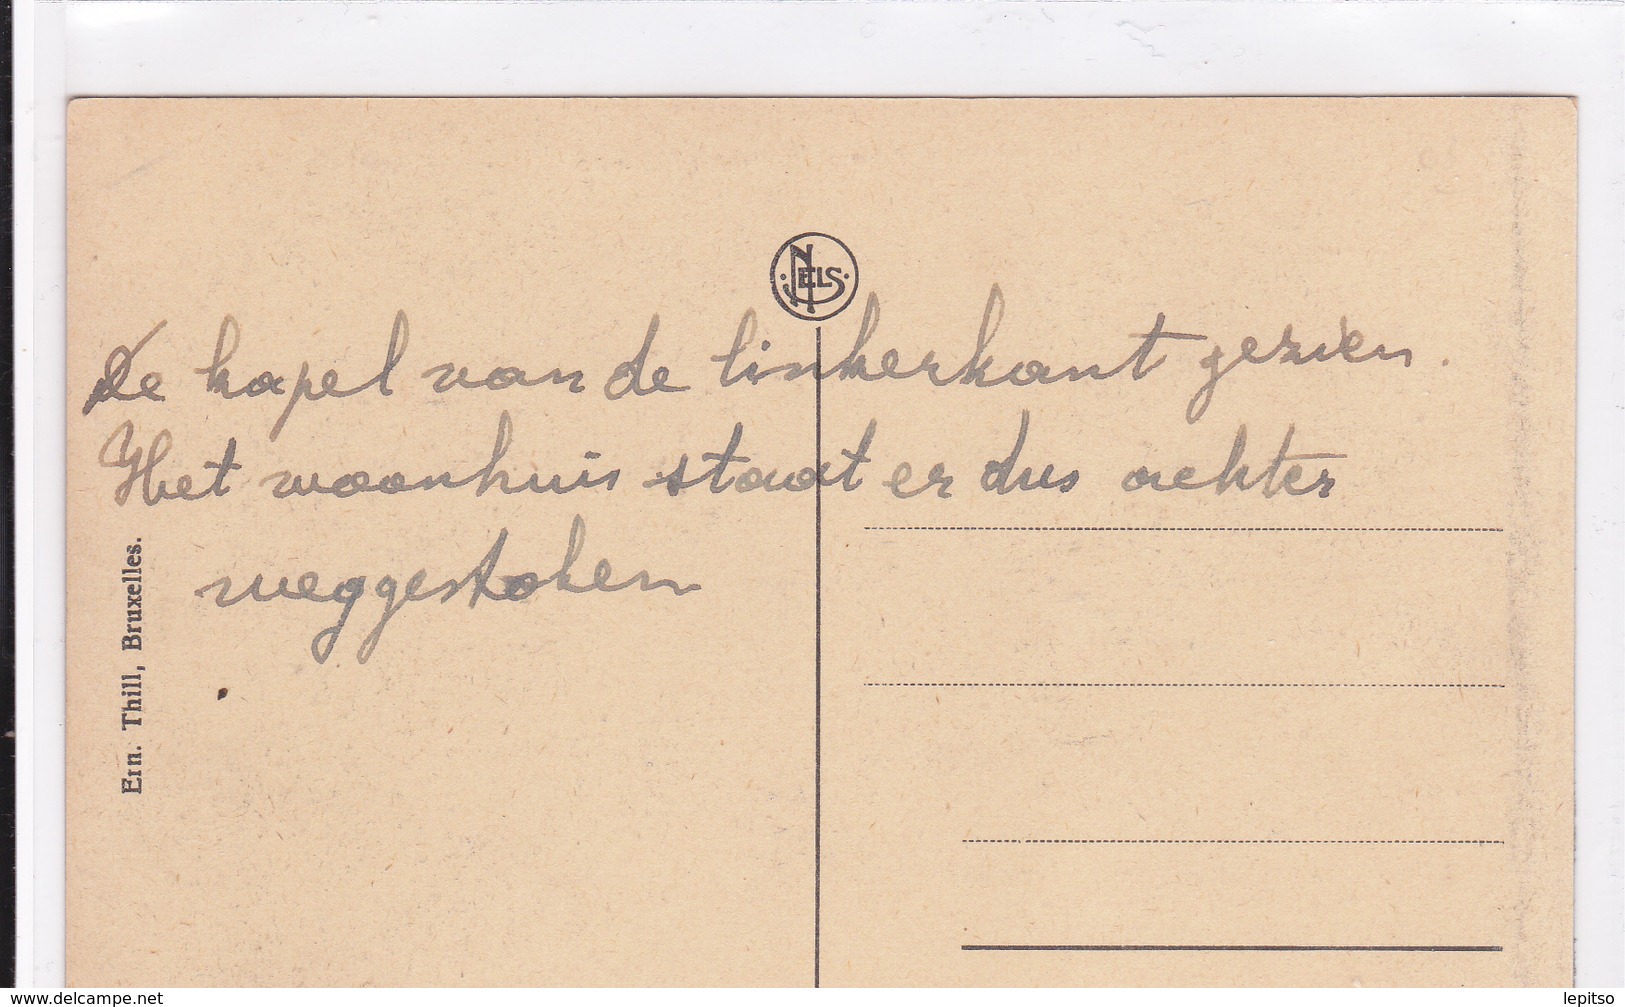 NELS
De kapel van de linkerkant gezien.
Het woonhuis staat er dus achter
weggestoken
Ern. Thill, Bruxelles.
www.delcampe.net
lepitso